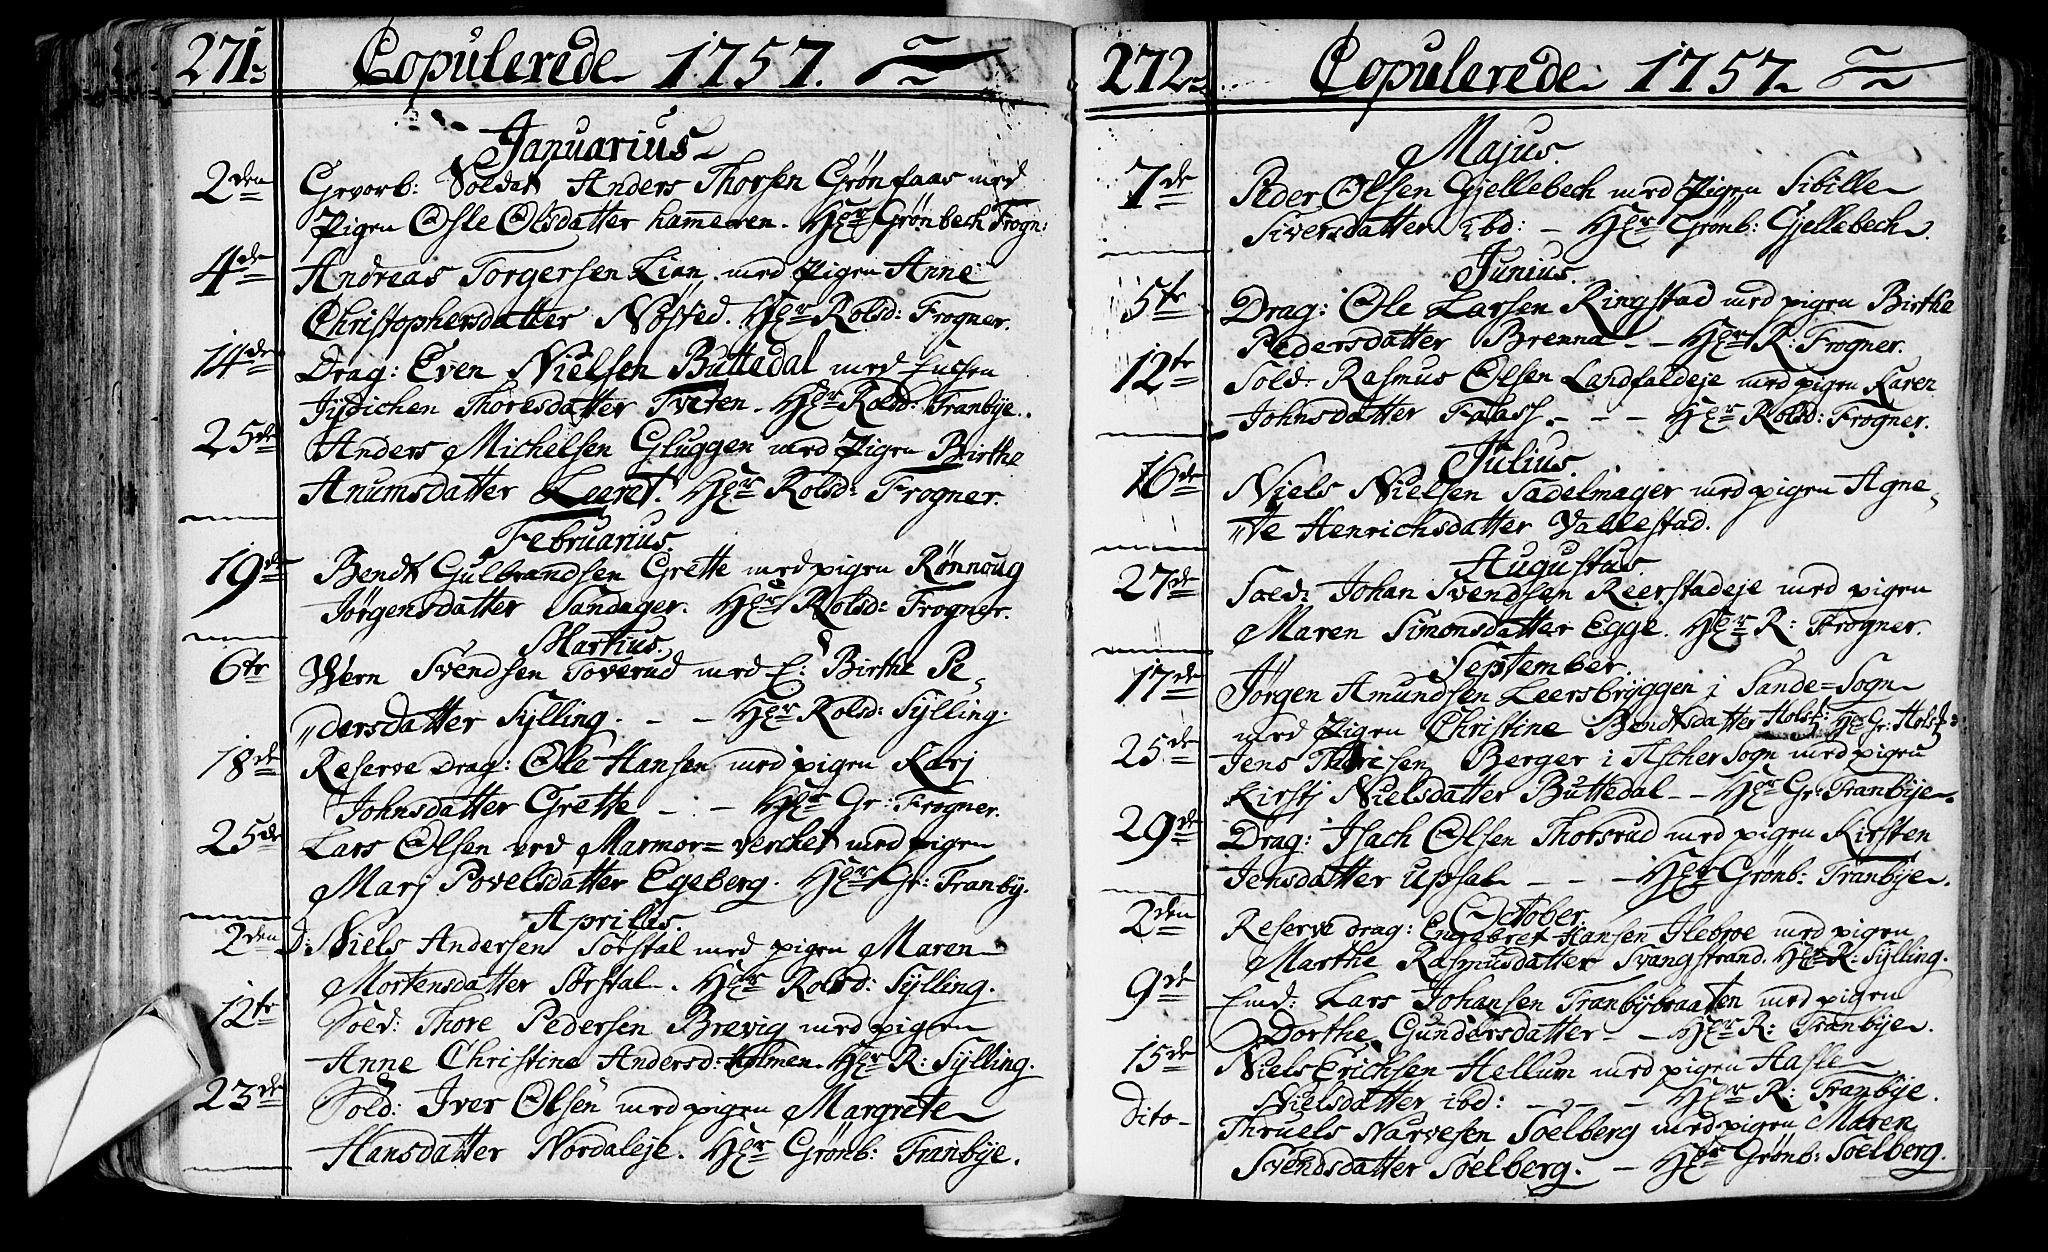 271.
Copulerede 1757.
Januarius
2den Grvorb: Soldat Anders Thorsen Grönfaas med
Pigen Osle Olsdatter hammeren. Hr Grönbech Frogn:
4de Andreas Torgersen Lian med Pigen Anne
Christophersdatter Nösted. Hr Rolsd: Frogner.
14de Drag: Even Nielsen Buttedal med Enchen
Jydichen Thoresdatter Tveten. Hr Rolsd: Franbye.
25de Anders Michelsen Gluggen med Pigen Birthe
Anumsdatter Leeret. Hr Rolsd: Frogner.
Februarius.
19de Bendt Gulbrandsen Grette med pigen Rönnoug
Jörgensdatter Sandager. Hr Rolsd: Frogner.
Martius.
6te Wern Svendsen Toverud med E: Birthe Pe„
„dersdatter Sylling. - - Hr Rolsd: Sylling.
18de Reserve Drag: Ole Hansen med pigen Karj
Johnsdatter Grette - - Hr Gr: Frogner.
25de Lars Olsen ved Marmor= verchet med pigen
Marj Povelsdatter Egeberg. Hr Gr: Tranby.
Aprilis.
2den D: Niels Andersen Sörstal med pigen Maren
Mortensdatter Sörstal. Hr Rolsd: Sylling.
12te Sold: Thore Pedersen Brævig med pigen
Anne Christine Andersd: Holmen. Hr R: Sylling.
23de Sold: Iver Olsen med pigen Margrete
Hansdatter Nordaleje. Hr Grönb: Tranbye.
272.
Copulerede 1757
Majus.
7de Peder Olsen Gjellebech med Pigen Sibille
Siversdatter ibd: - Hr Grönb: Gjellebech.
Junius.
5te Drag: Ole Larsen Ringstad med pigen Birthe
Pedersdatter Brenna - - Hr R: Frogner.
12te Sold. Rasmus Olsen Landfaldeje med pigen Karen
Johnsdatter Faass. - - - Hr Rolsd: Frogner.
Julius.
16de Niels Nielsen Sadelmager med pigen Agne„
„te Henrichsdatter Vallestad.
Augustus
27de Sold: Johan Svendsen Reerstadeje med pigen
Maren Simonsdatter Egge. Hr R: Frogner.
September.
17de Jörgen Amundsen Leersbryggen i Sande=Sogn
med Pigen Christine Bendtsdatter Holst: Hr Gr: Holst:
25de Jens Berger i Ascher Sogn med pigen
Kirstj Nielsdatter Buttedal - Hr Gr: Tranbye.
29de Drag: Isach Olsen Thorsrud med pigen Kirsten
Jensdatter Upsal - - - Hr Grönb: Tranbye.
October.
2den Reserve drag: Engebret Hansen Ilebroe med pigen
Marthe Rasmusdatter Svangstrand. Hr R: Sylling.
9de Emd: Lars Johansen Tranbybraaten med pigen
Dorthe Gundersdatter - - Hr R: Tranbye.
15de Niels Erichsen Hellum med pigen Aasle
Nielsdatter ibd: - - - Hr R: Tranbye.
Dito - Thruels Narvesen Soelberg med pigen Maren
Svendsdatter Soelberg. - Hr Grönb: Soelberg.